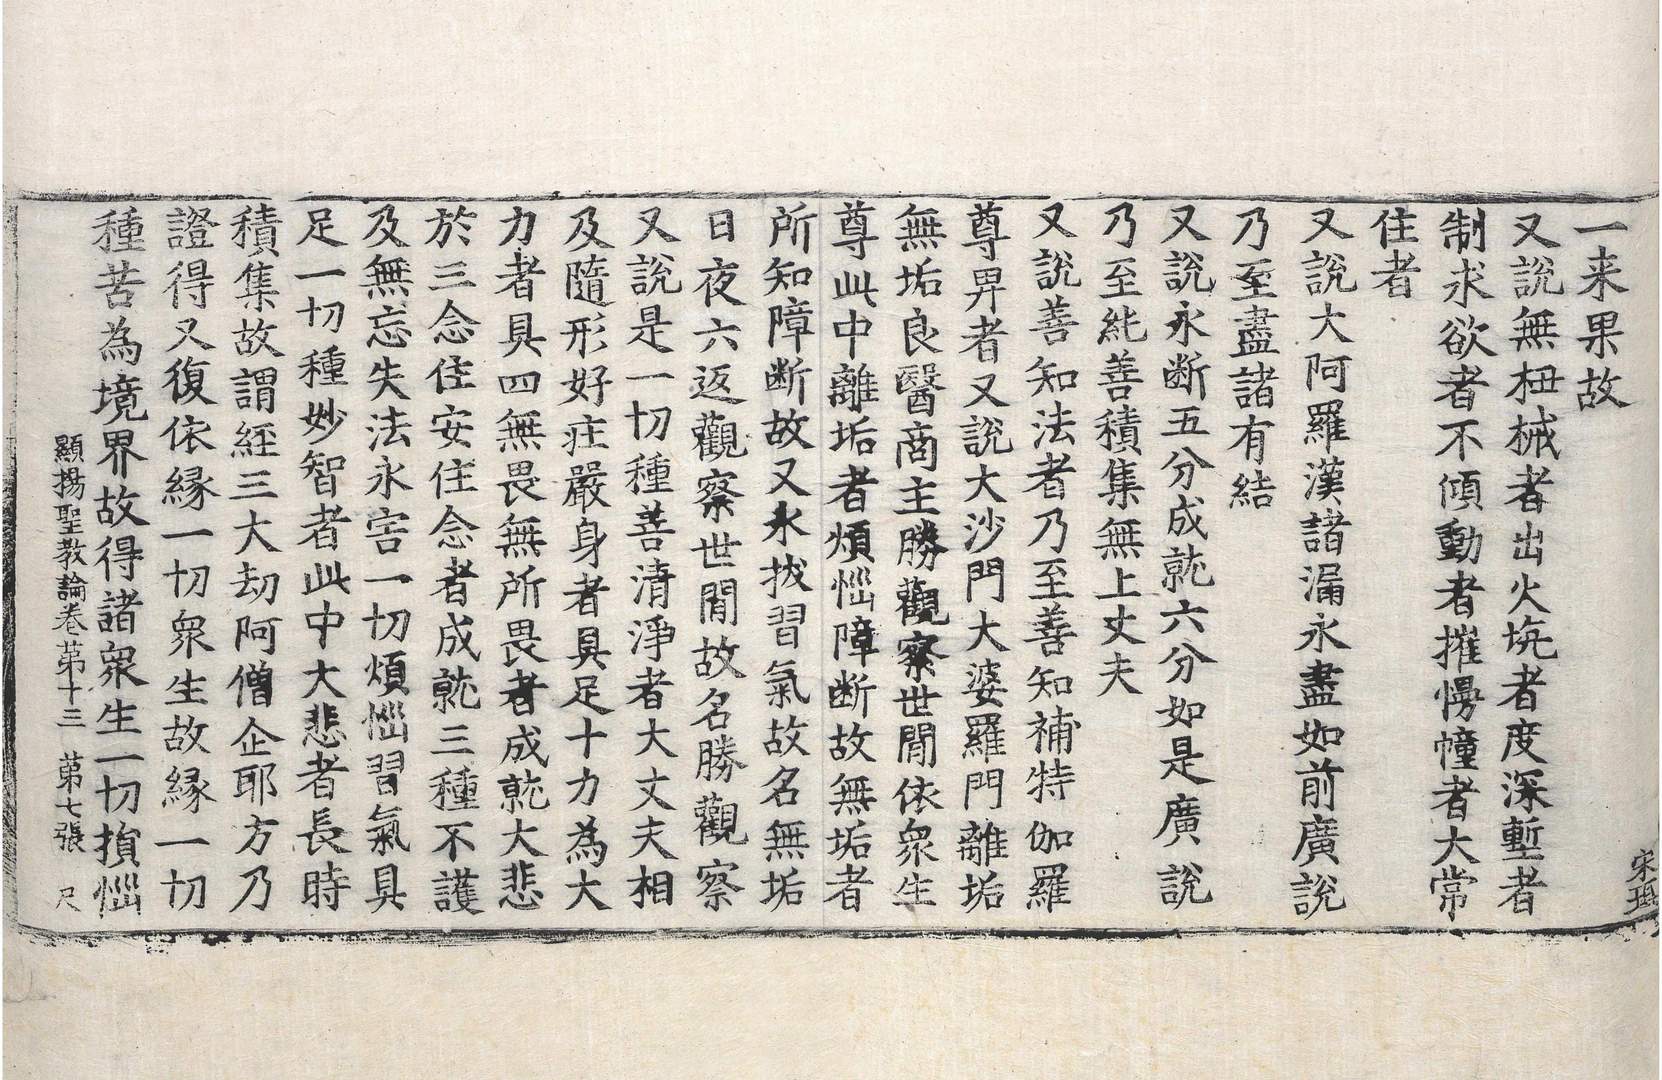 一来果故
又說無杻械者出火坑者度深塹者
制求欲者不傾動者摧慢幢者大常
住者
又說大阿羅漢諸漏永盡如前廣說
乃至盡諸有結
又說永断五分成就六分如是廣說
乃至純善積集無上丈夫
又說善知法者乃至善知補特伽羅
尊卑者又說大沙門大婆羅門離垢
無垢良醫商主勝觀察世閒依衆生
尊此中離垢者煩惱障断故無垢者
所知障断故又永拔習氣故名無垢
日夜六返觀察世閒故名勝觀察
又說是一切種善清淨者大丈夫相
及隨形好莊嚴身者具足十力為大
力者具四無畏無所畏者成就大悲
於三念住安住念者成就三種不護
及無忘失法永害一切煩惱習氣具
足一切種妙智者此中大悲者長時
積集故謂經三大劫阿僧企耶方乃
證得又復依縁一切衆生故縁一切
種苦為境界故得諸衆生一切損惱
顯揚聖教論卷第十三 第七張 尺
宋